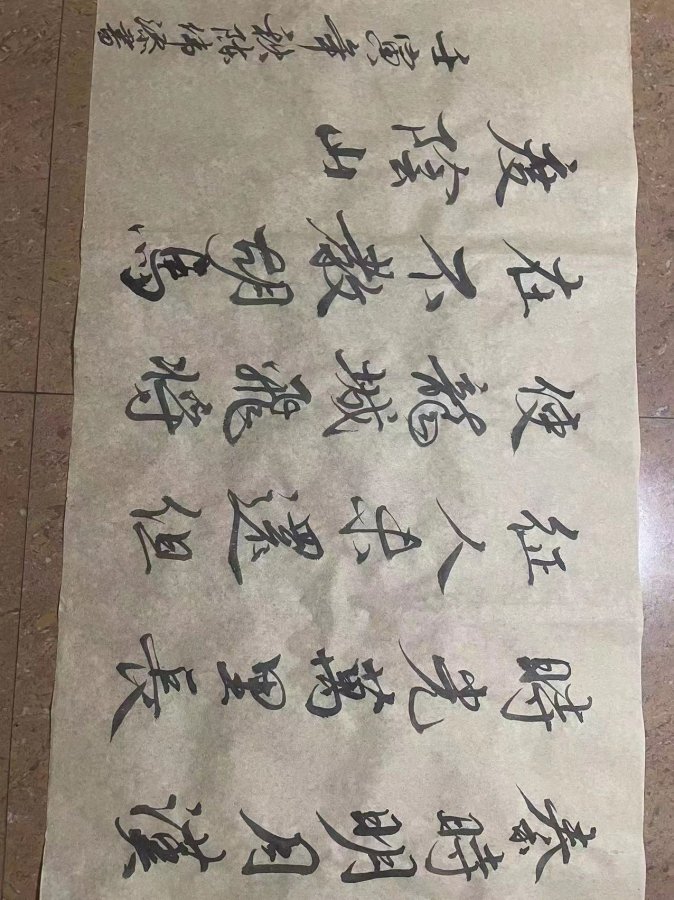 秦時明月漢
時关萬里長
征人未還但
使龍城飛將
在不教胡馬
度陰山
壬寅年秋陈書